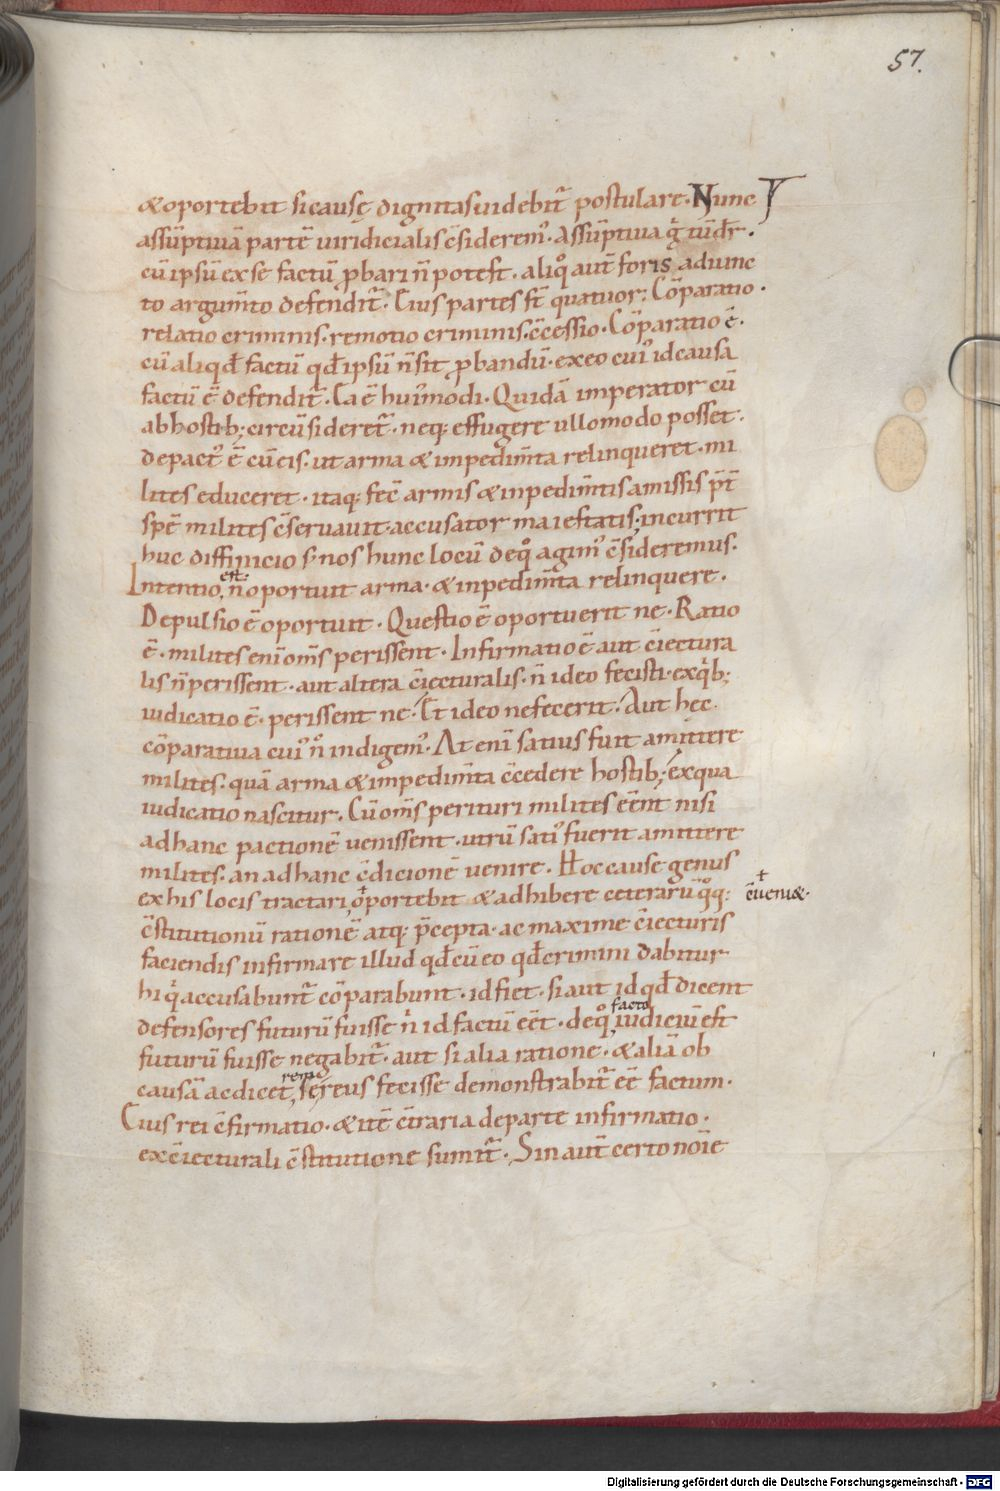 57.
&oportebit si causę dignitas uidebit̄ postulare. Nunc
assūptiuā partē uiridicialis c̄sideremꝰ. Assūptiua g̊ tūdr̄.
cū ipsū ex se factū ꝓbari n̄ potest. aliqͦ aut̄ foris adiunc
to argum̄to defendit̄. Cuius partes st̄ quatuor; Cōparatio.
relatio criminis. remotio criminis. c̄cessio. Cōparatio ē.
cū aliqd̄ factū qd̄ ipsū n̄ sit ꝓbandū. ex eo cuiꝰ id causa
factū ē defendit̄. Ea ē huiꝰmodi. Quidā imperator cū
ab hostib; circūsideret̄. neq; effugere ullo modo posset.
depactꝰ ē cū eis. ut arma & impedim̄ta relinqueret. mi
lites educeret. itaq; fec̄ armis & inpedim̄tis amissis p̄t̄
spē milites c̄seruauit. accusator maiestatis; incurrit
huc diffinicio s; nos hunc locū de qͦ agimꝰ c̄sideremus.
Intentio est: n̄ oportuit arma. & inpedim̄ta relinquere.
Depulsio ē oportuit. Questio ē oportuerit ne. Ratio
ē. milites eni om̄s perissent. Infirmatio ē aut c̄iectura
lis n̄ perissent. aut altera c̄iecturalis. n̄ ideo fecisti. ex qͥb;
iudicatio ē. perissent ne. Et ideo ne fecerit. Aut hęc
cōparatiua cuiꝰ nͦ indigemꝰ. At eni satius fuit amittere
milites. quā arma & impedim̄ta c̄cedere hostib; ex qua
iudicatio nascitur. Cū om̄s perituri milites eēnt nisi
ad hanc pactionē uenissent. utrū satiꝰ fuerit amittere
milites. an ad hanc c̄dicionē uenire. Hoc cause genus
ex his locis tractari oportebit & adhibere ceterarū qͦq;
c̄ueni&.
c̄stitutionū rationē atq; p̄cepta. ac maxime c̄iecturis
faciendis infirmare illud qd̄ cū eo qd̄ crimini dabitur
hi qͥ accusabunt̄ cōparabunt. id fiet. si aut id qd̄ dicent
defensores futurū fuisse nͥ id factū eēt. de qͦ facto iudiciū est
futurū fuisse negabit̄. aut si alia ratione. & aliā ob
causā ac dicet, se reus fecisse demonstrabit̄ eē factum.
Cuius rei c̄firmatio. & itē c̄traria de parte infirmatio.
ex c̄iecturali c̄stitutione sumit̄. Sin aut̄ certo noīe
Digitalisierung gefördert durch die Deutsche Forschungsgemeinschaft - DFG